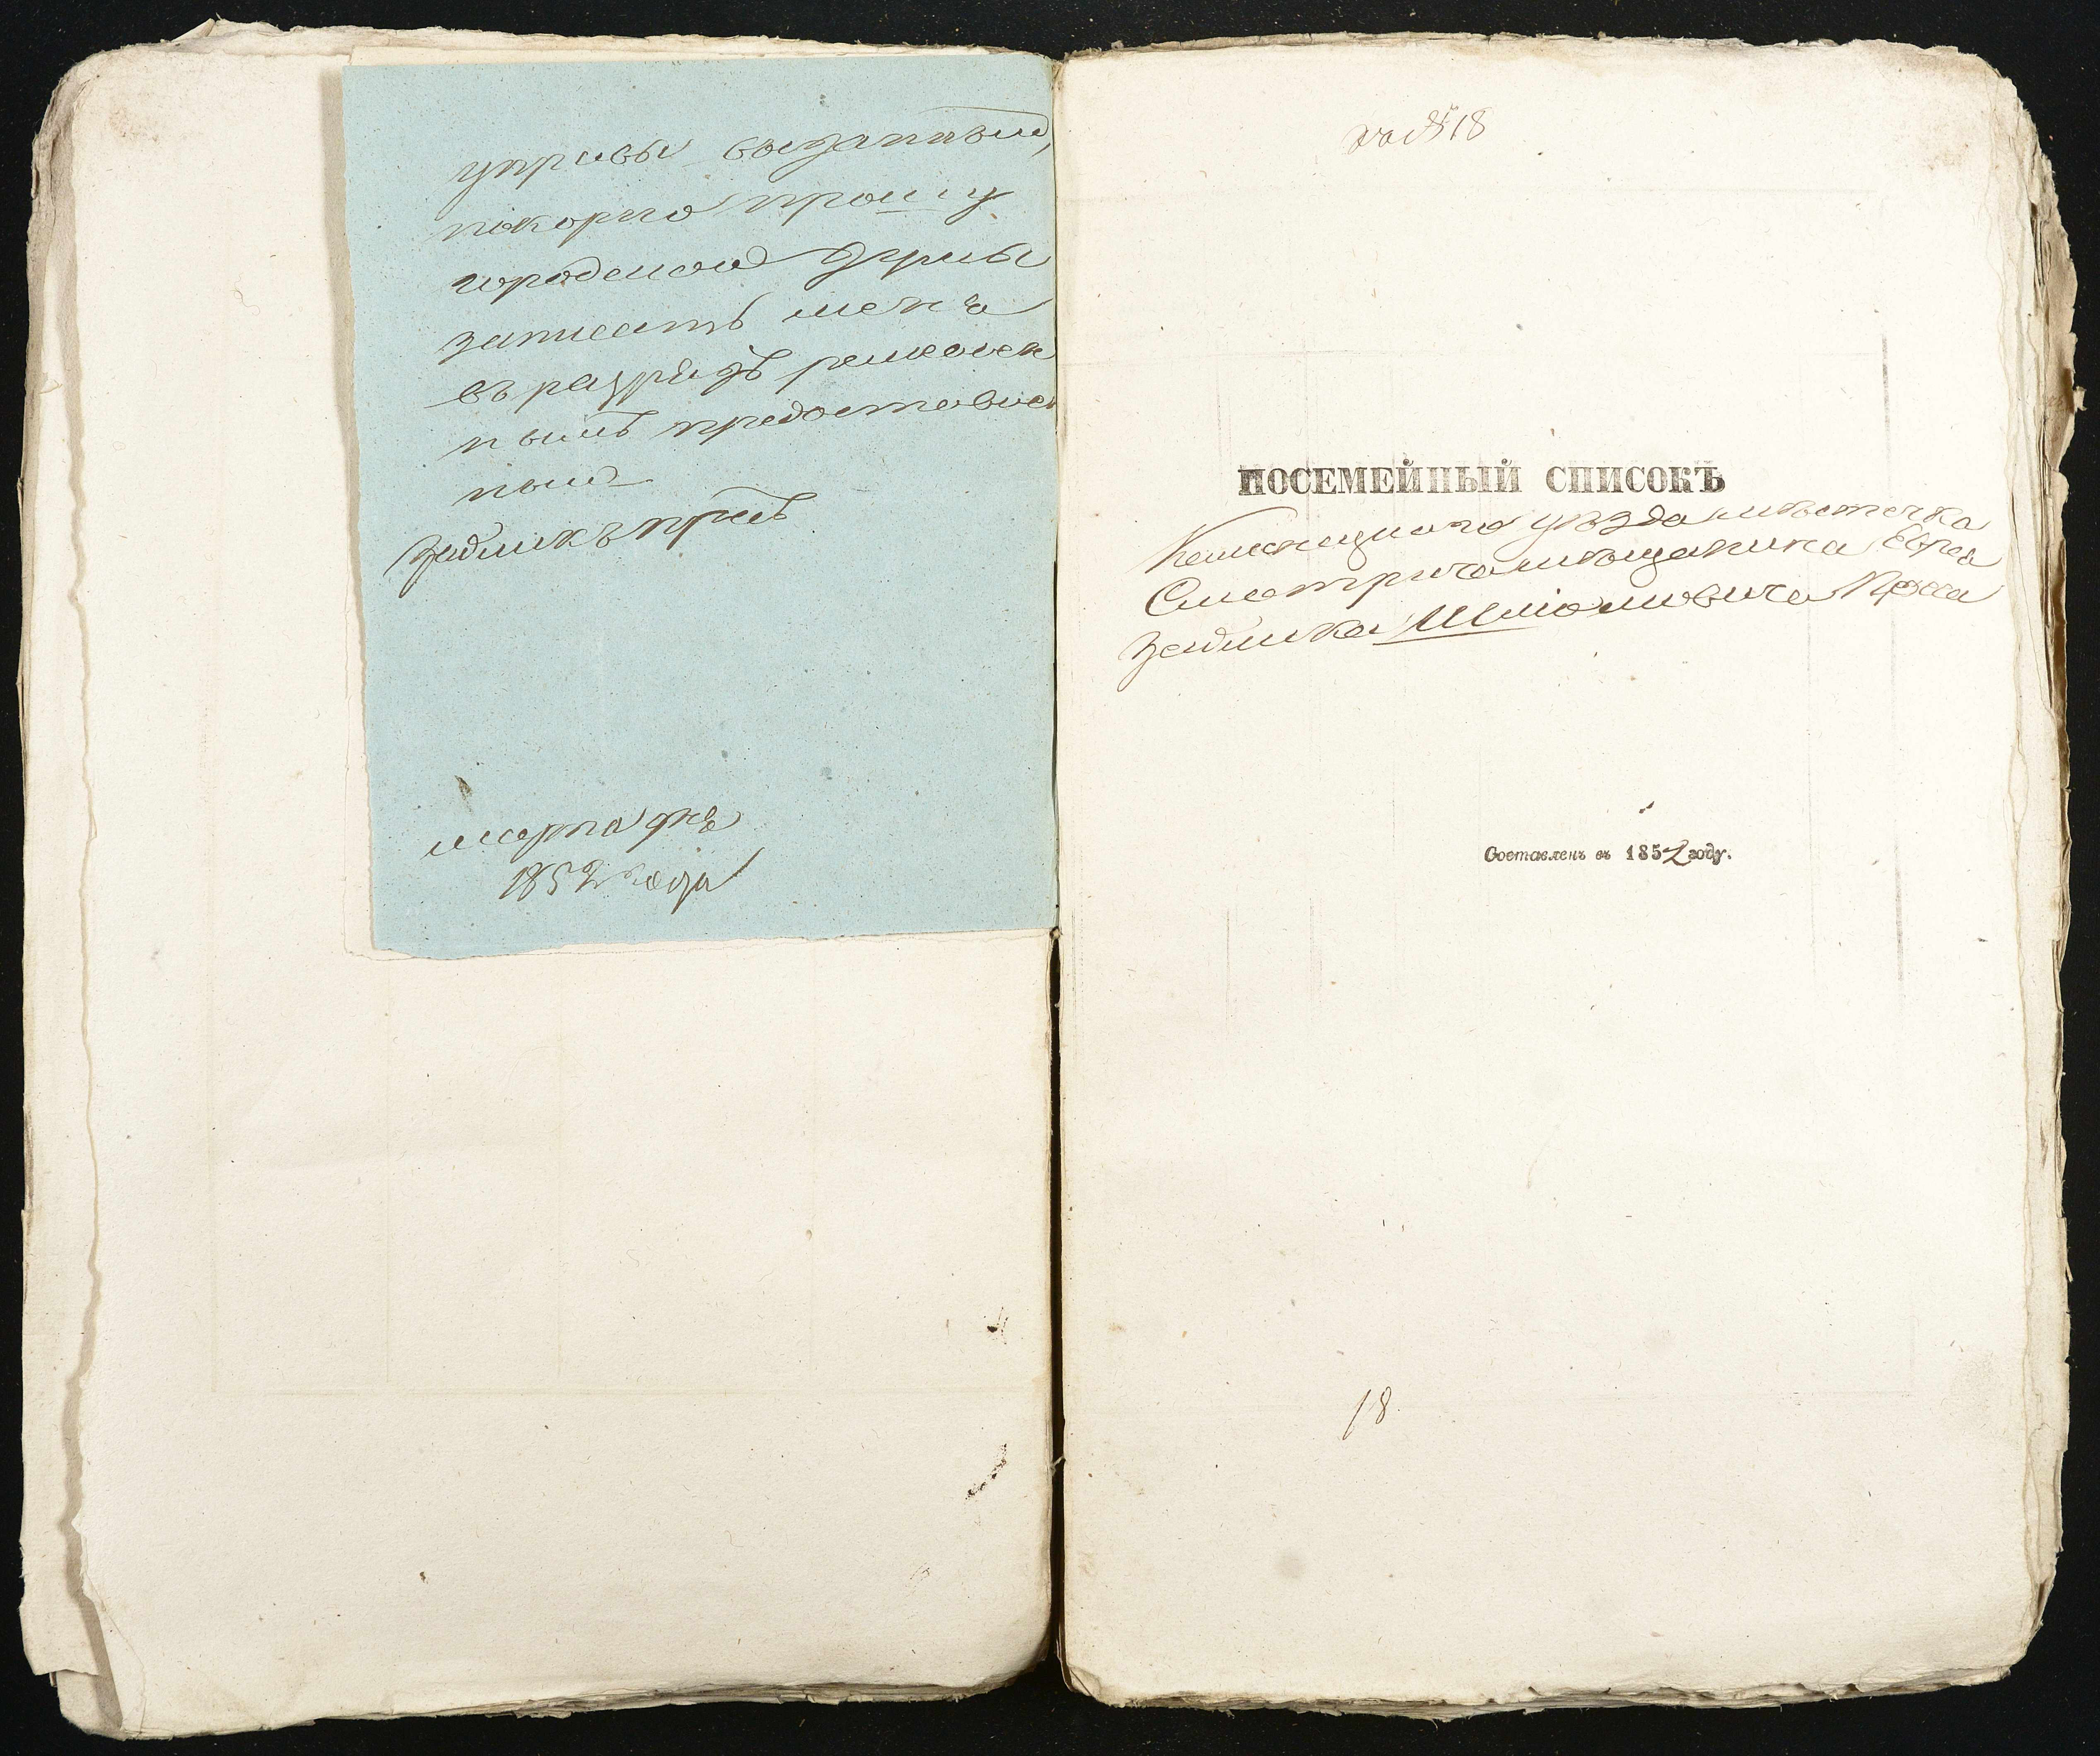 управы выданный,
покорно прошу
городской думы
записать меня
въ разрядъ ремеслен
нымъ
ный
Зейликъ
марта дня
1852 года
18
ПОСЕМЕЙНЫЙ СПИСОКЪ
Каменецкаго уѣзда мѣстечка
Смотрича мѣщанина Еврея
Зейлика Шліомовича
Составленъ въ 1852 году.
18